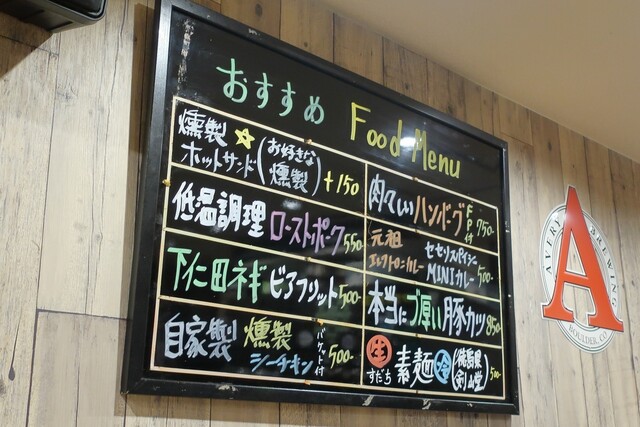 おすすめ Food Menu
燻製
ホットサンド(お好きな燻製)+150
低温調理 ローストポーク 550
下仁田ネギ ビアフリット 500-
自家製 燻製
シーチキン バケット付 500-
肉々しいハンバーグ FP付 750-
元祖
エレクトロニカレー セセリスパイシー
MINIカレー 500-
本当にブ厚い豚カツ 850-
生すだち 素麺 冷 (徳島県 剣山堂) 500-
AVERY BREWING
A
BOULDER, CO